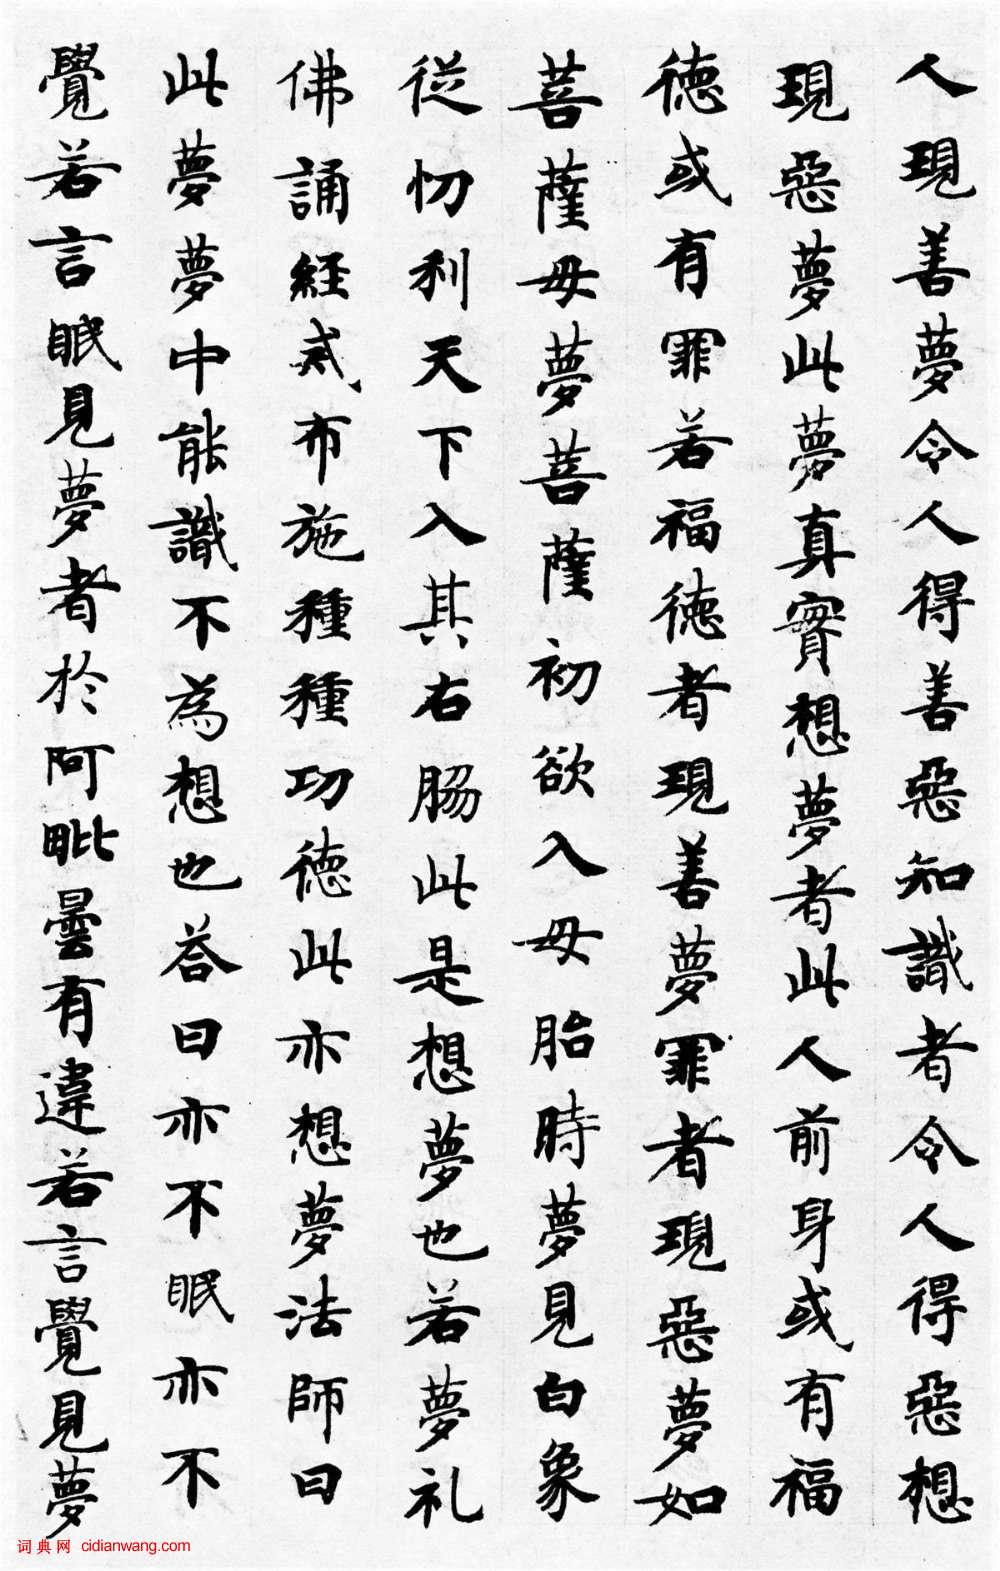 人現善夢令人得善惡知識者令人得惡想
現惡夢此夢真實想夢者此人前身或有福
德或有罪若福德者現善夢罪者現惡夢如
菩薩母夢菩薩初欲入母胎時夢見白象
從忉利天下入其右脇此是想夢也若夢礼
佛誦經貳布施種種功德此亦想夢法師曰
此夢夢中能識不為想也荅曰亦不眠亦不
覺若言眠見夢者於阿毗曇有違若言覺見夢
词典网 cidianwang.com